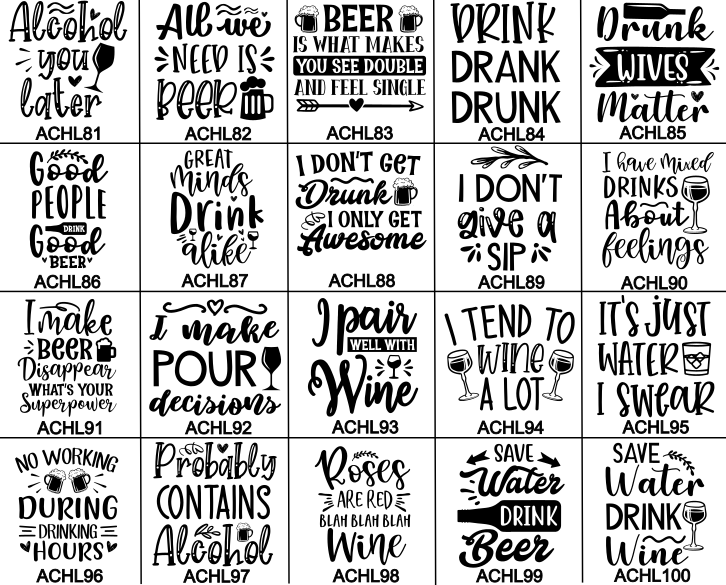 Alcohol
you
later
ACHL81
All we
NEED IS
BEER
ACHL82
BEER
IS WHAT MAKES
YOU SEE DOUBLE
AND FEEL SINGLE
ACHL83
DRINK
DRANK
DRUNK
ACHL84
Drunk
WIVES
Matter
ACHL85
Good
PEOPLE
DRINK
Good
BEER
ACHL86
GREAT
minds
Drink
alike
ACHL87
I DON'T GET
Drunk
I ONLY GET
Awesome
ACHL88
I DON'T
give a
SIP
ACHL89
I have Mixed
DRINKS
About
feelings
ACHL90
I make
BEER
Disappear
WHAT'S YOUR
Superpower
ACHL91
I make
POUR
decisions
ACHL92
I pair
WELL WITH
Wine
ACHL93
I TEND TO
WINE
A LOT
ACHL94
IT'S JUST
WATER
I SWEAR
ACHL95
NO WORKING
DURING
DRINKING
HOURS
ACHL96
Probably
CONTAINS
Alcohol
ACHL97
Roses
ARE RED
BLAH BLAH BLAH
Wine
ACHL98
SAVE
Water
DRINK
Beer
ACHL99
SAVE
Water
DRINK
Wine
ACHL100